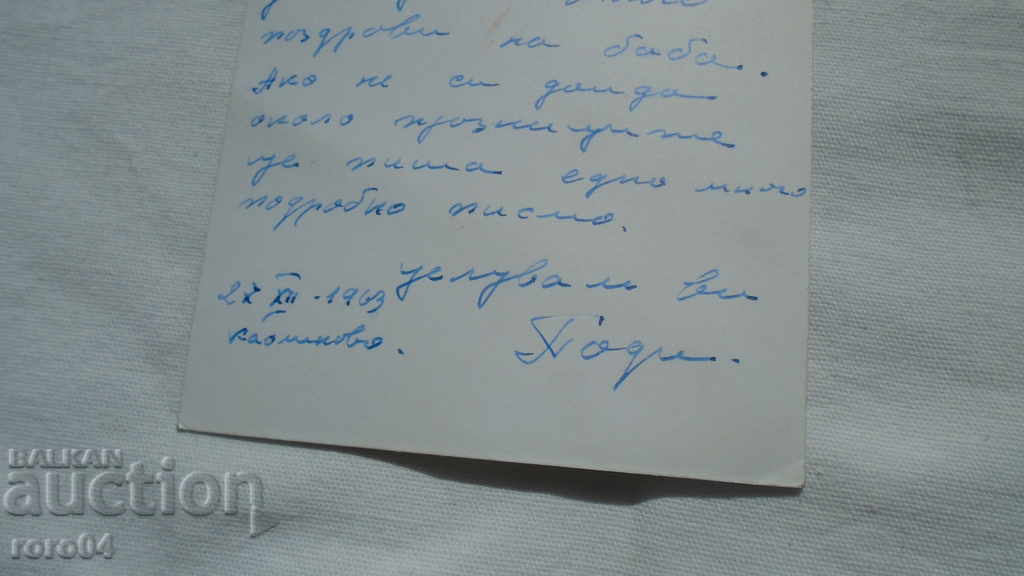 поздрави на баба.
Ако не си дойда
около празниците
ще пиша едно много
подробно писмо.
целувам ви
27 XII - 1963
Калиново.
BALKAN
auction
roro04